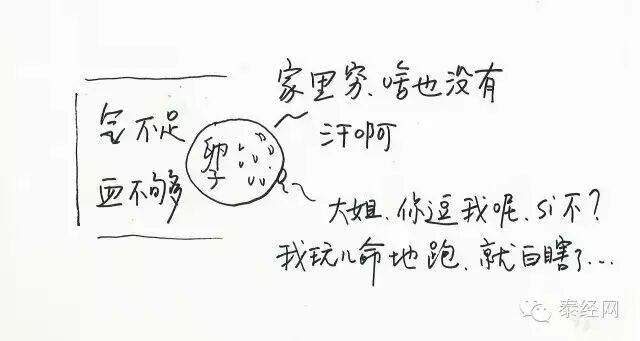 家里穷、啥也没有
汗啊
气不足
血不够
卵子
大姐、你逗我呢、si不?
我玩儿命地跑、就白瞎了...
泰经网